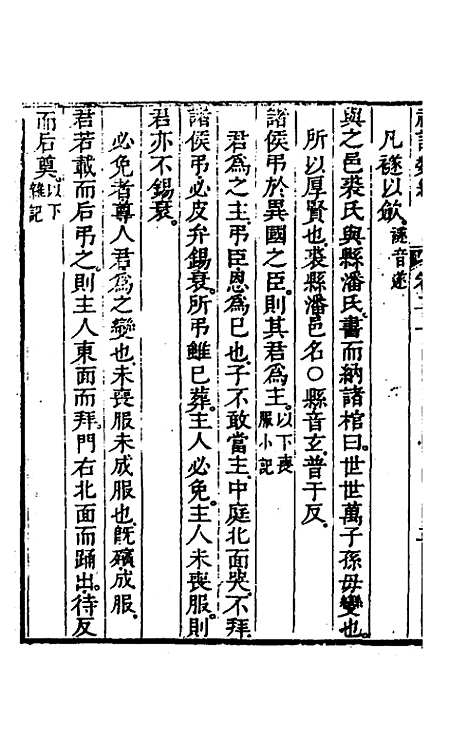 凡襚以斂。襚音遂
與之邑裘氏與縣潘氏書而納諸棺曰。世世萬子孫毋變也。
所以厚賢也。裘縣潘邑名○縣音玄。普干反。
諸侯弔於異國之臣。則其君爲主。以下喪服小記
君爲之主。弔臣恩爲已也。子不敢當主。中庭北面哭。不拜。
諸侯弔。必皮弁錫衰。所弔雖已葬。主人必免。主人未喪服。則
君亦不錫衰。
必免者。尊人君爲之變也。未喪服。未成服也。旣殯成服。
君若載而后弔之。則主人東面而拜。門右北面而踊。出。待反
而后奠。以下雜記